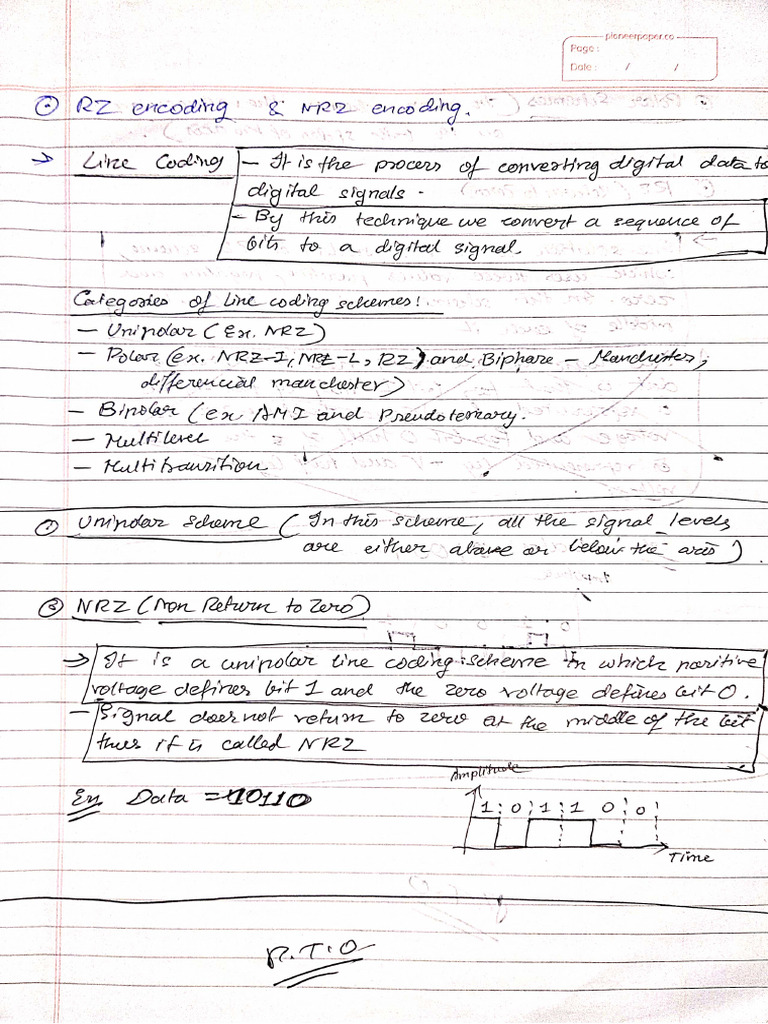 pioneerpaper.co
Page :
Date : / /
RZ encoding & NRZ encoding.
→ Line Coding - It is the process of converting digital data to
digital signals.
- By this technique we convert a sequence of
bits to a digital signal.
Categories of line coding schemes:
- Unipolar (Ex. NRZ)
- Polar (ex. NRZ-I, NRZ-L, RZ) and Biphase - Manchester,
differencial manchester)
- Bipolar (ex AMI and Pseudoternary.
- Multilevel
- Multitransition
① Unipolar Scheme ( In this scheme, all the signal levels
are either above or below the axis ).
NRZ (Non Return to Zero)
→ It is a unipolar line coding scheme in which positive
voltage defines bit 1 and the zero voltage defines bit 0.
- Signal does not return to zero at the middle of the bit
thus it is called NRZ
Ex Data = 10110
Amplitude
1 0 1 1 0 0
Time
P.T.O